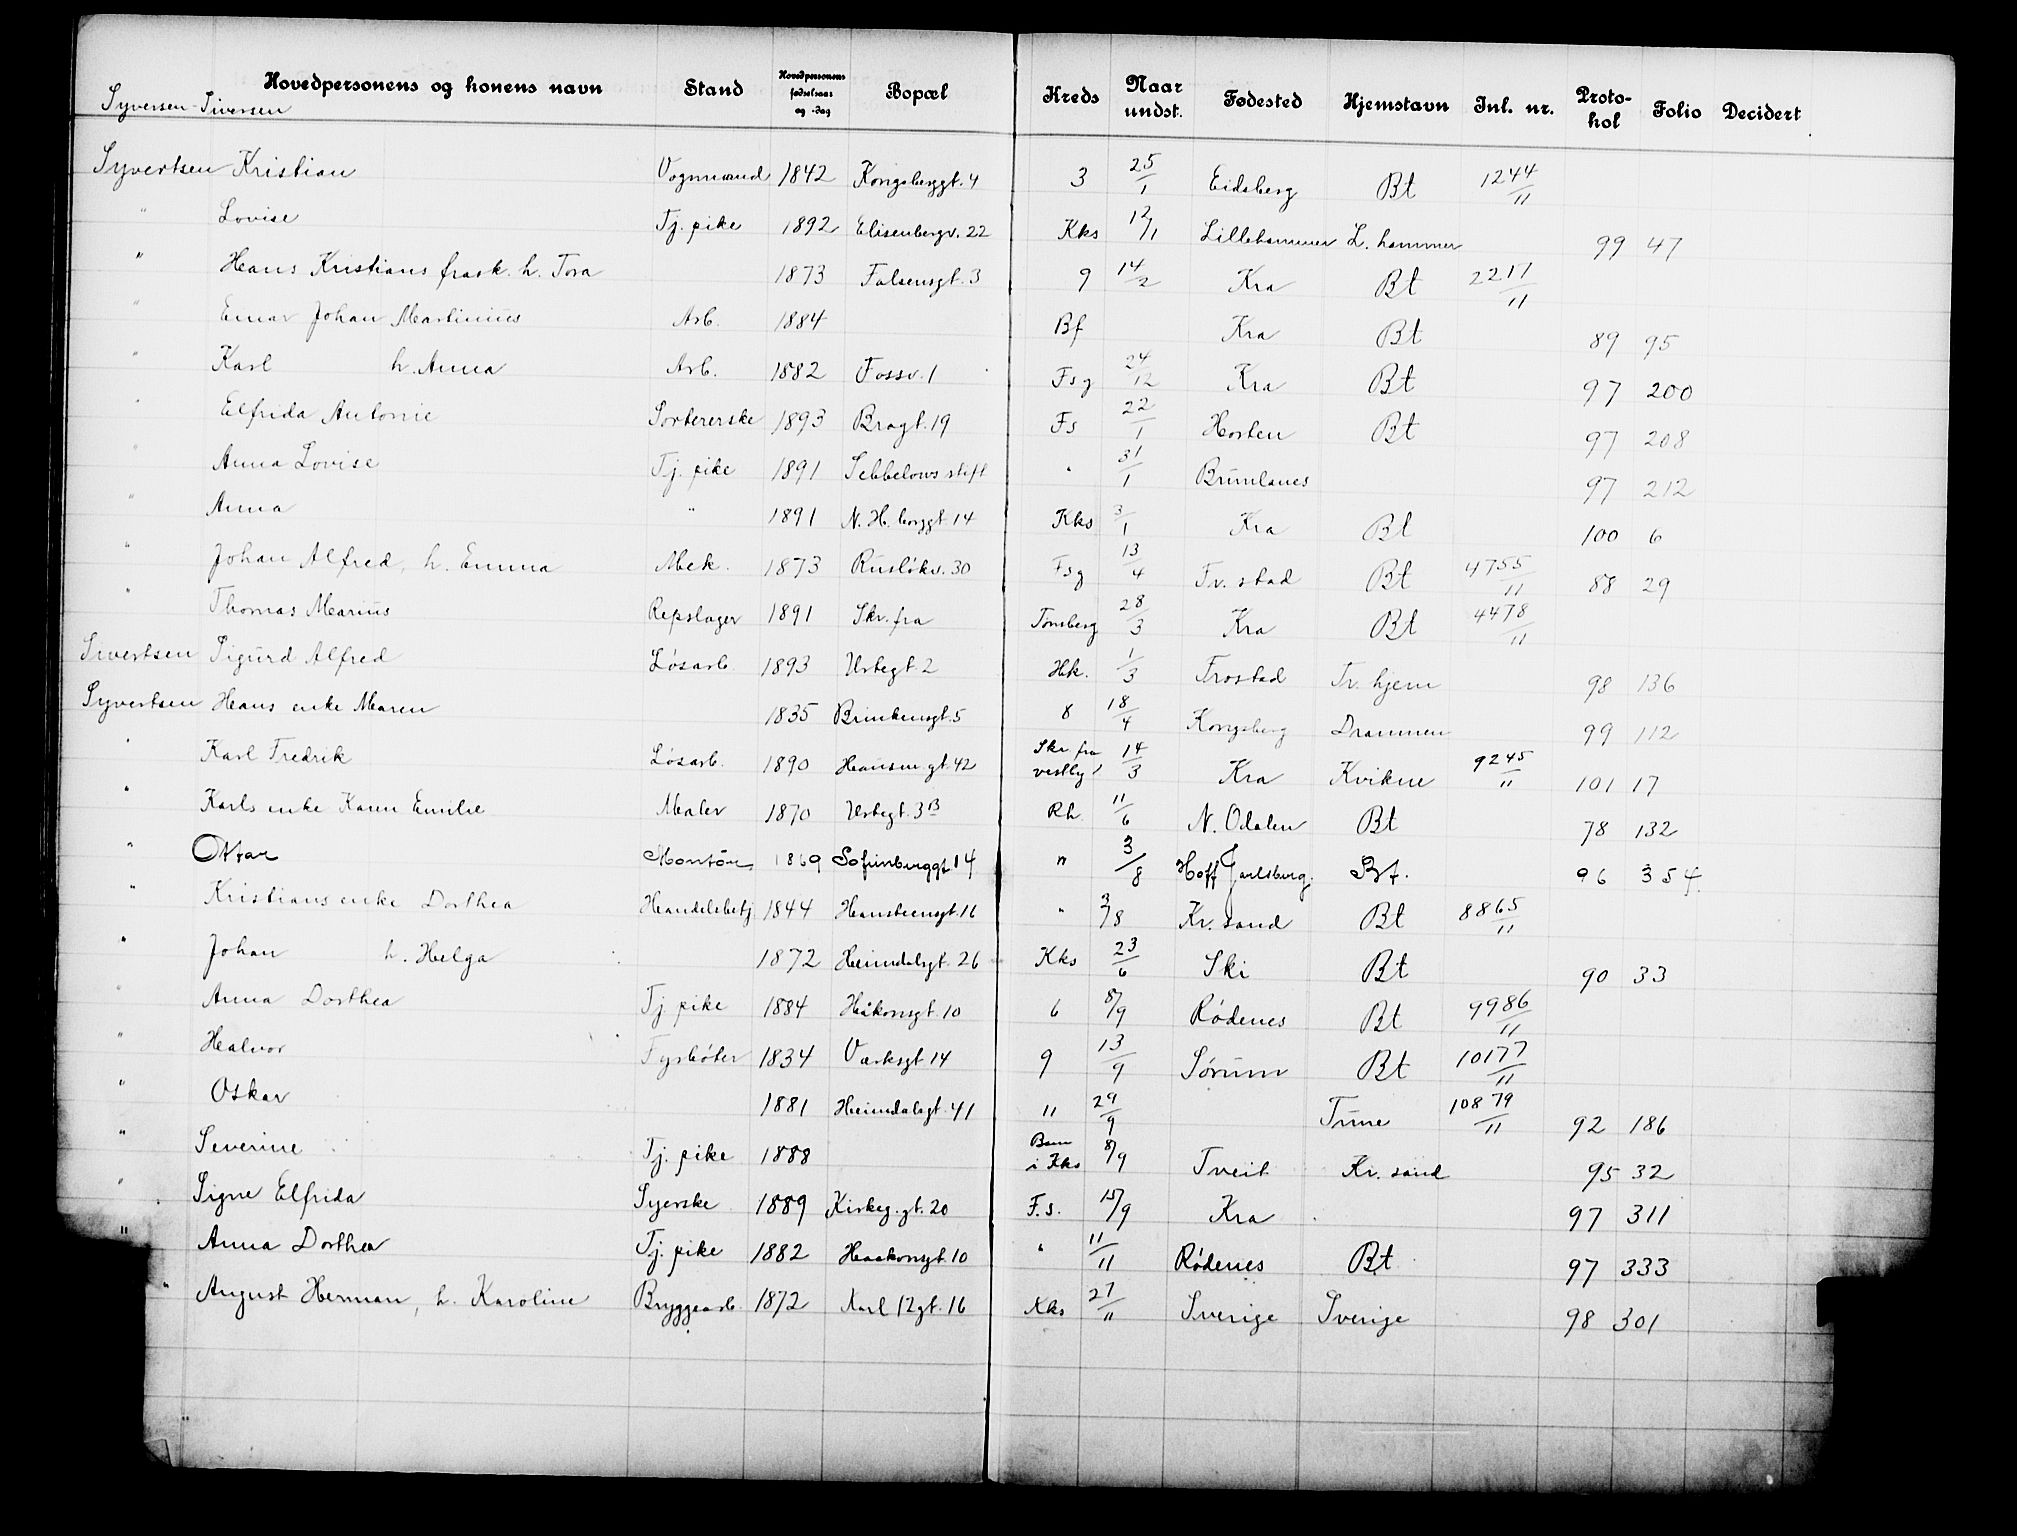 Hovedpersonens og konens navn Stand Hovedpersonens fødselsaar og -dag Bopæl Kreds Naar undst. Fødested Hjemstavn Inl. nr. Protokol Folio Decidert
Syversen - Siversen
Syvertsen Kristian Vognmand 1842 Kongsberggt. 4 3 25/1 Eidsberg Bt 1244/11
" Lovise Tj. pike 1892 Elisenbergv. 22 Kks 12/1 Lillehammer L. hammer 99 47
" Hans Kristians frask. h. Tora 1873 Falsensgt. 3 9 14/2 Kra Bt 2217/11
" Einar Johan Martinius Arb. 1884 Bf Kra Bt 89 95
" Karl h. Anna Arb. 1882 Fossv. 1 Fsg 24/12 Kra Bt 97 200
" Elfrida Antonie Sortererske 1893 Bragt. 19 Fs 22/1 Horten Bt 97 208
" Anna Lovise Tj. pike 1891 Sebbelows stift " 31/1 Brunlanes 97 212
" Anna " 1891 N. H. berggt 14 Kks 3/1 Kra Bt 100 6
" Johan Alfred, h. Emma Mek. 1873 Rusløkv. 30 Fsg 13/4 Fr. stad Bt 4755/11 88 29
" Thomas Marius Repslager 1891 Skr. fra Tønsberg 28/3 Kra Bt 4478/11
Sivertsen Sigurd Alfred Løsarb. 1893 Urtegt. 2 Hk. 1/3 Frostad Tr. hjem 98 136
Syvertsen Hans enke Maren 1835 Brinkensgt. 5 8 18/4 Kongsberg Drammen 99 112
" Karl Fredrik Løsarb. 1890 Hausm. gt. 42 Skr fra vestby 14/3 Kra Kvikne 9245/11 101 17
" Karls enke Karen Emilie Maler 1870 Urtegt. 3 B Rh. 11/6 N. Odalen Bt 78 132
" Ottar Montør 1869 Sofienberggt 14 " 3/8 Hoff Jarlsberg. Bt. 96 354.
" Kristians enke Dorthea Handelsbetj. 1844 Hansteensgt. 16 " 3/8 Kr. sand Bt 8865/11
" Johan h. Helga 1872 Heimdalsgt. 26 Kks 23/6 Ski Bt 90 33
" Anna Dorthea Tj pike 1884 Håkonsgt. 10 6 8/9 Rødenes Bt 9986/11
" Halvor Fyrbøter 1834 Verksgt. 14 9 13/9 Sørum Bt 10177/11
" Oskar 1881 Heimdalsgt. 41 11 29/9 Tune 10879/11 92 186
" Severine Tj. pike 1888 Barn i Kks 8/9 Tveit Kr. sand 95 32
" Signe Elfrida Syerske 1889 Kirkeg. gt. 20 F. s. 15/9 Kra 97 311
" Anna Dorthea Tj. pike 1882 Haakonsgt. 10 " 11/11 Rødenes Bt 97 333
" August Herman, h. Karoline Bryggearb. 1872 Karl 12 gt. 16 Kks 27/11 Sverige Sverige 98 301